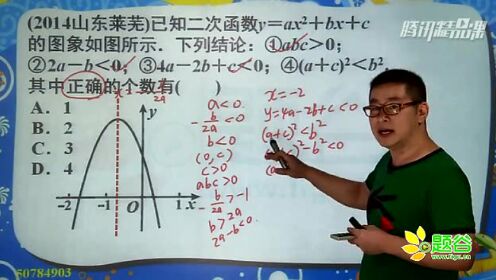 腾讯精品课
(2014山东莱芜)已知二次函数y=ax²+bx+c
的图象如图所示．下列结论：①abc>0；
②2a−b<0；③4a−2b+c<0；④(a+c)²<b²
其中正确的个数有(　　)
A．1
B．2
C．3
D．4
y
-2 -1 O 1 x
a<0
-b/2a<0
b<0
(0,c)
c>0
abc>0
-b/2a>-1
b>2a
2a-b<0
x=-2
y=4a-2b+c<0
(a+c)²<b²
)²-b²<0
50784903
题谷
www.tigu.cn